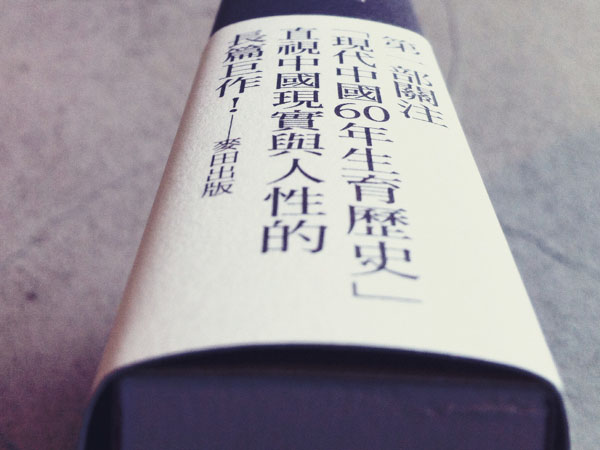 第一部關注
「現代中國60年生育歷史」
直視中國現實與人性的
長篇巨作！—麥田出版